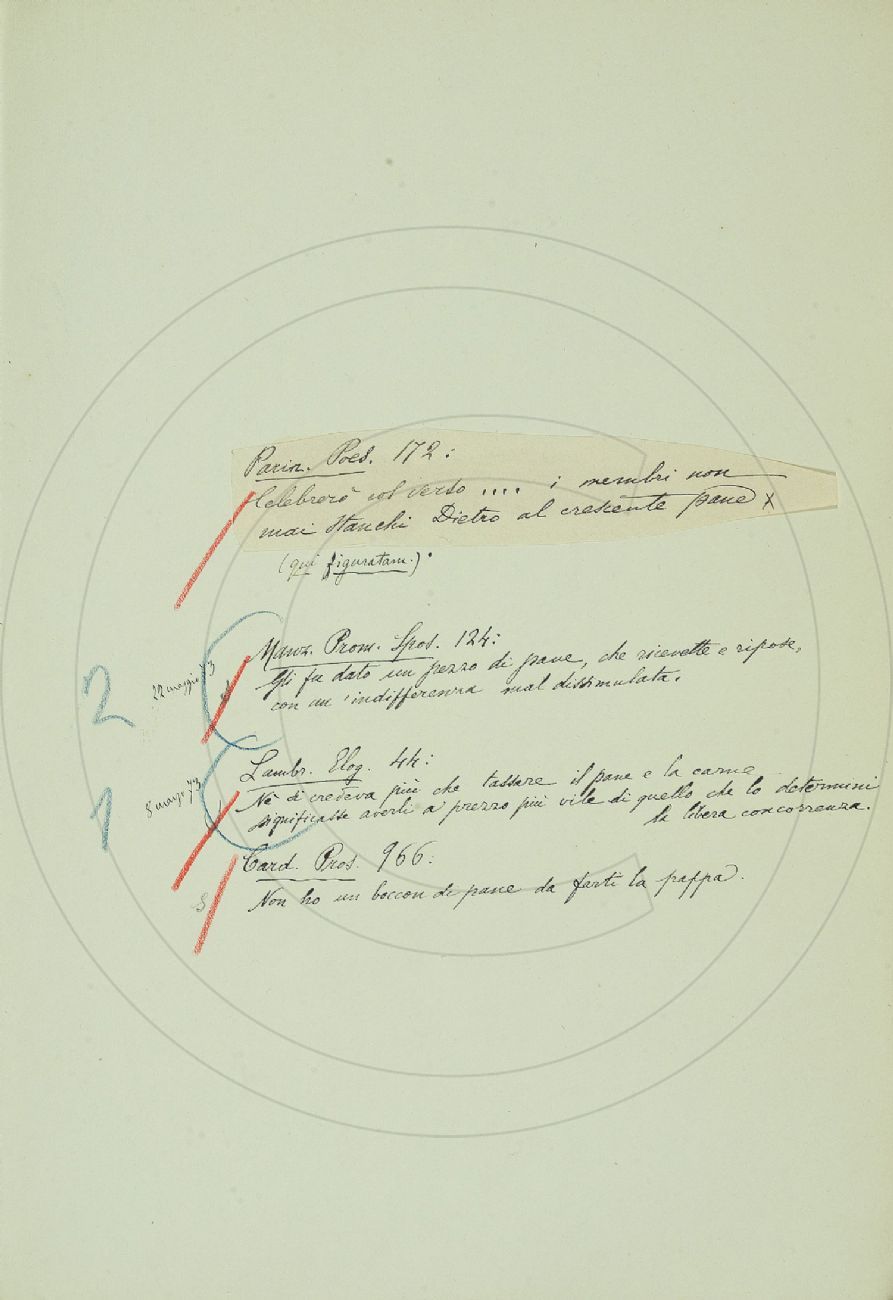 Parin. Poes. 172:
Celebrerò col verso .... i membri non
mai stanchi Dietro al crescente pane x
(qui figuratam.).
Manz. Prom. Spos. 124:
Gli fu dato un pezzo di pane, che ricevette e ripose,
con un'indifferenza mal dissimulata.
2
22 maggio 73
Lambr. Elog. 44:
Nè si credeva più che tassare il pane e la carne
significasse averli a prezzo più vile di quello che lo determini
la libera concorrenza.
1
8 marzo 73
Card. Pros. 966:
Non ho un boccon di pane da farti la pappa.